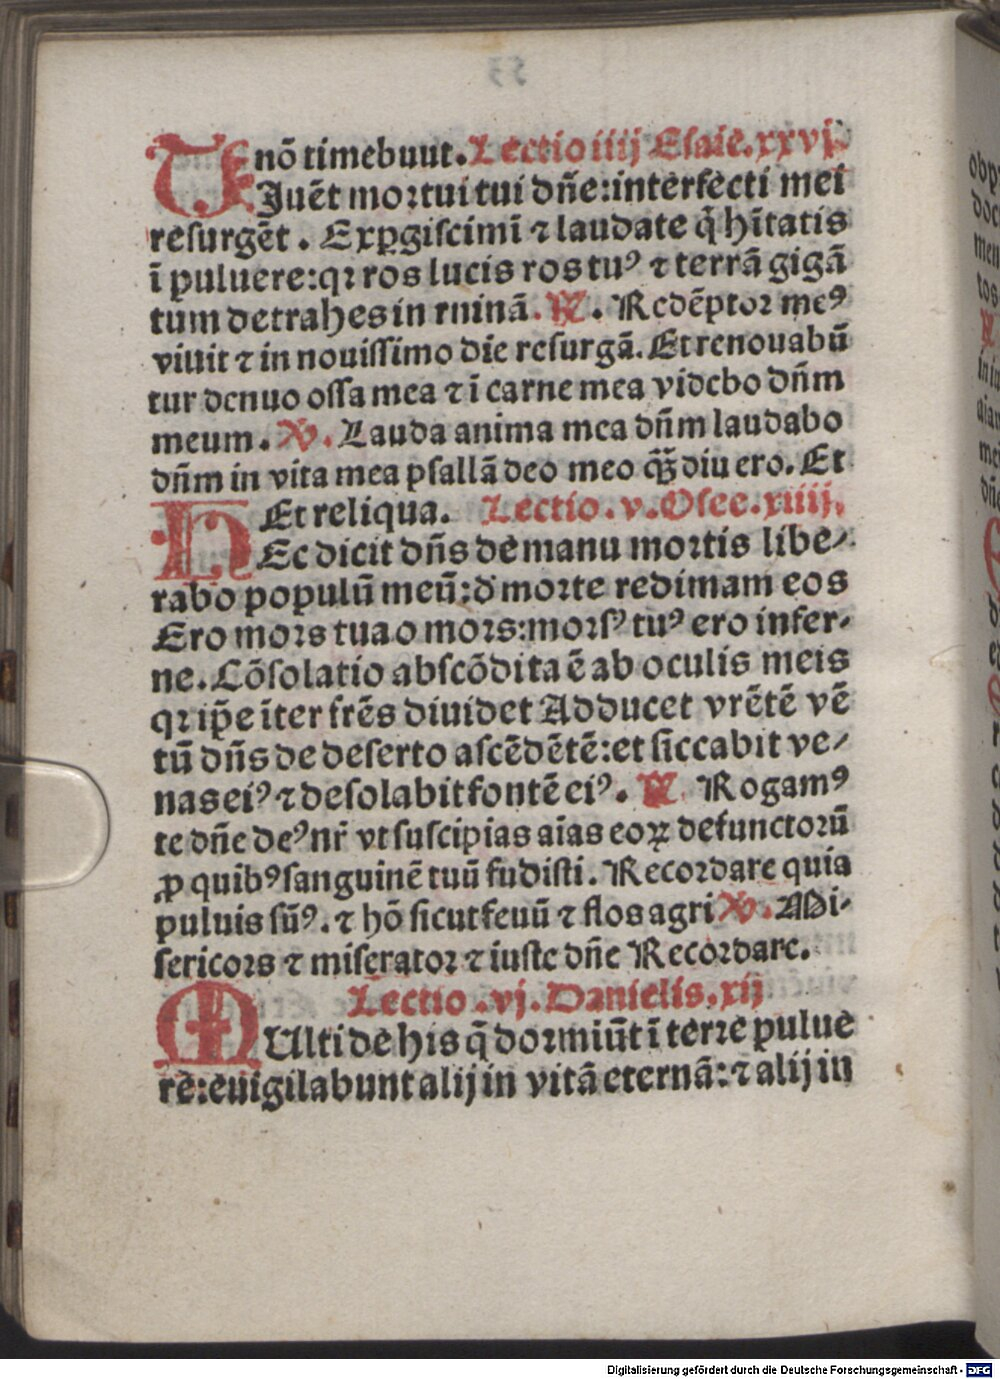 nō timebuut. Lectio iiij Esaie. xxvj.
VJuēt mortui tui dn̄e: interfecti mei
resurgēt. Exꝑgiscimī ⁊ laudate q̄ hītatis
ī puluere: qꝛ ros lucis ros tuꝰ ⁊ terrā gigā
tum detrahes in ruinā. ℟. Redēptor meꝰ
viuit ⁊ in nouissimo die resurgā. Et renouabū
tur denuo ossa mea ⁊ ī carne mea videbo dn̄m
meum. ℣. Lauda anima mea dn̄m laudabo
dn̄m in vita mea psallā deo meo qͣꝫ diu ero. Et
Et reliqua. Lectio. v. Osee. xiiij.
HEc dicit dn̄s de manu mortis libe⸗
rabo populū meū: d̄ morte redimam eos
Ero mors tua o mors: morsꝰ tuꝰ ero infer⸗
ne. Cōsolatio abscōdita ē ab oculis meis
qꝛ ip̄e īter frēs diuidet Adducet vrētē vē
tū dn̄s de deserto ascēdētē: et siccabit ve⸗
nas eiꝰ ⁊ desolabit fontē eiꝰ. ℟. Rogamꝰ
te dn̄e deꝰ nr̄ vt suscipias aīas eoꝝ defunctorū
ꝓ quibꝰ sanguinē tuū fudisti. Recordare quia
puluis sūꝰ. ⁊ hō sicut feuū ⁊ flos agri ℣. Mi⸗
sericors ⁊ miserator ⁊ iuste dn̄e Recordare.
Lectio. vj. Danielis. xij
MUlti de his q̄ dormiūt ī terre pulue
re: euigilabunt alij in vitā eternā: ⁊ alij in
Digitalisierung gefördert durch die Deutsche Forschungsgemeinschaft - DFG